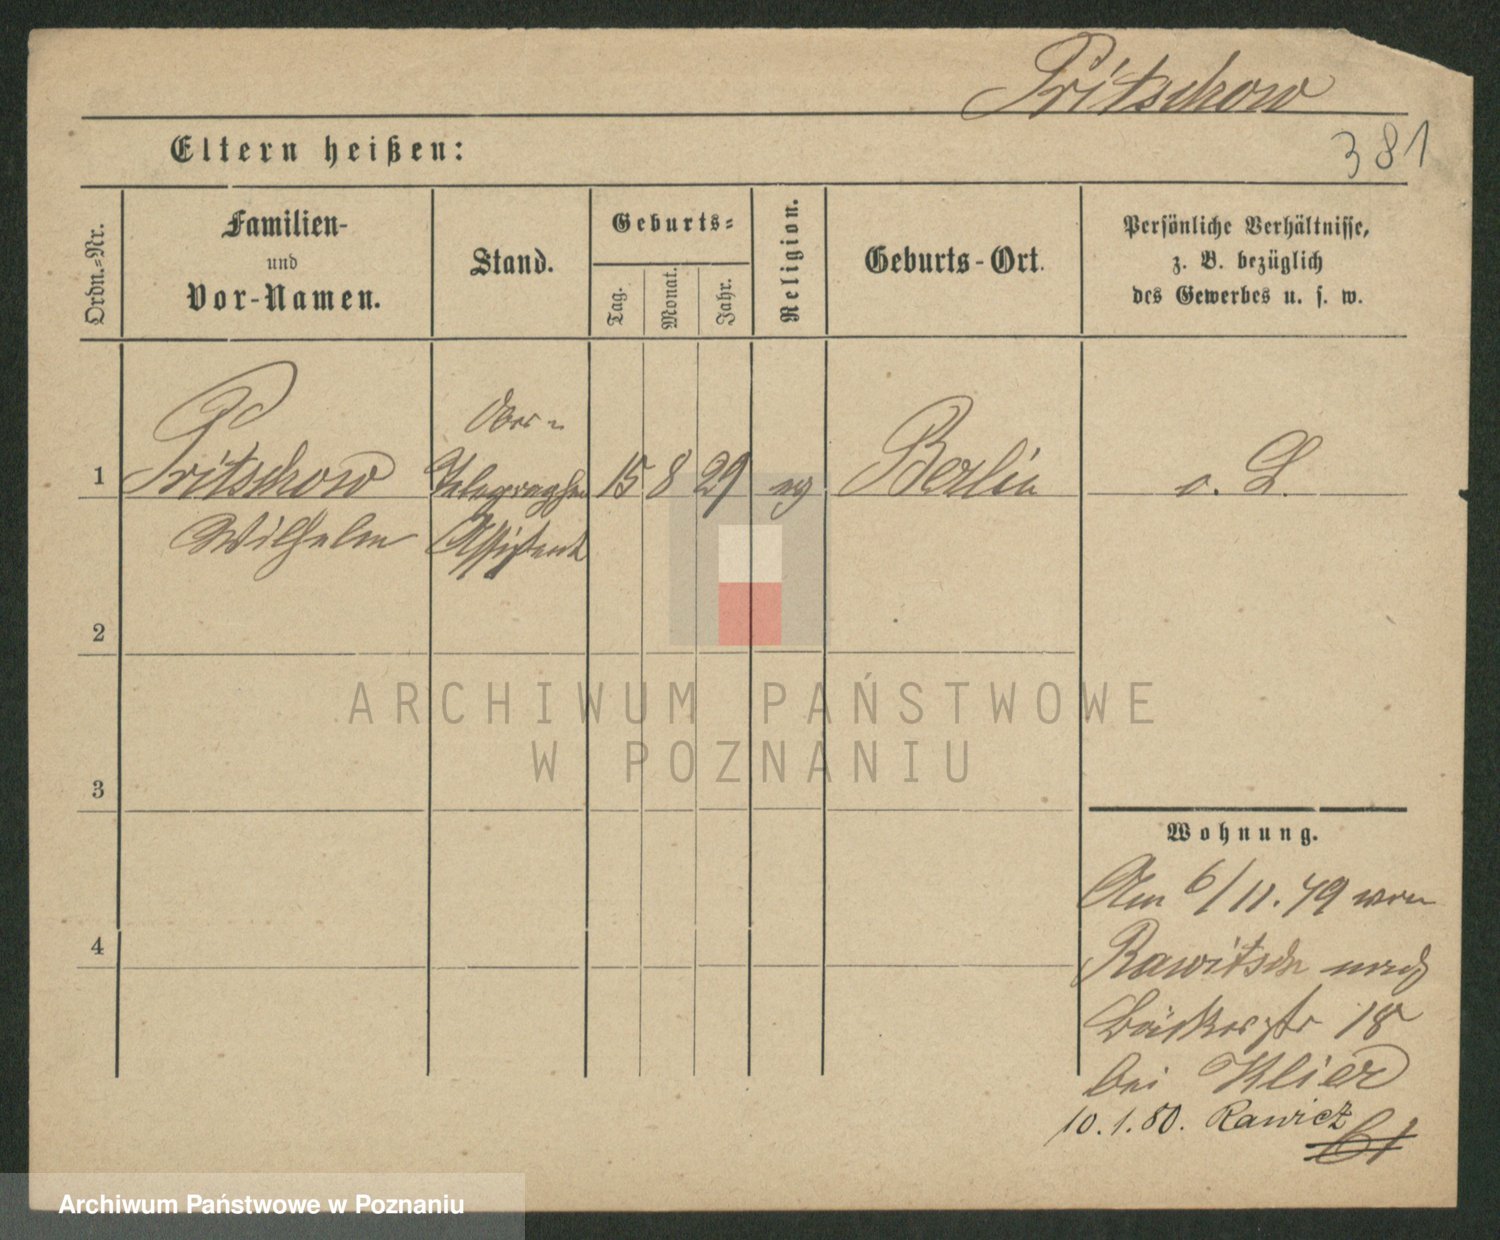 Pritschow
381
Eltern heißen:
Ordn.-Nr.
Familien-
und
Vor-Namen.
Stand.
Geburts-
Tag.
Monat.
Jahr.
Religion.
Geburts-Ort.
Persönliche Verhältnisse,
z. B. bezüglich
des Gewerbes u. s. w.
1
Pritschow
Wilhelm
Ober-
Telegraphen
Assistent
15 8 29
Berlin
o. L.
2
3
4
ARCHIWUM PAŃSTWOWE
W POZNANIU
Wohnung.
Am 6/11. 79 von
Rawitsch nach
Bäckerstr 18
bei Klier
10.1.80. Rawicz
Archiwum Państwowe w Poznaniu